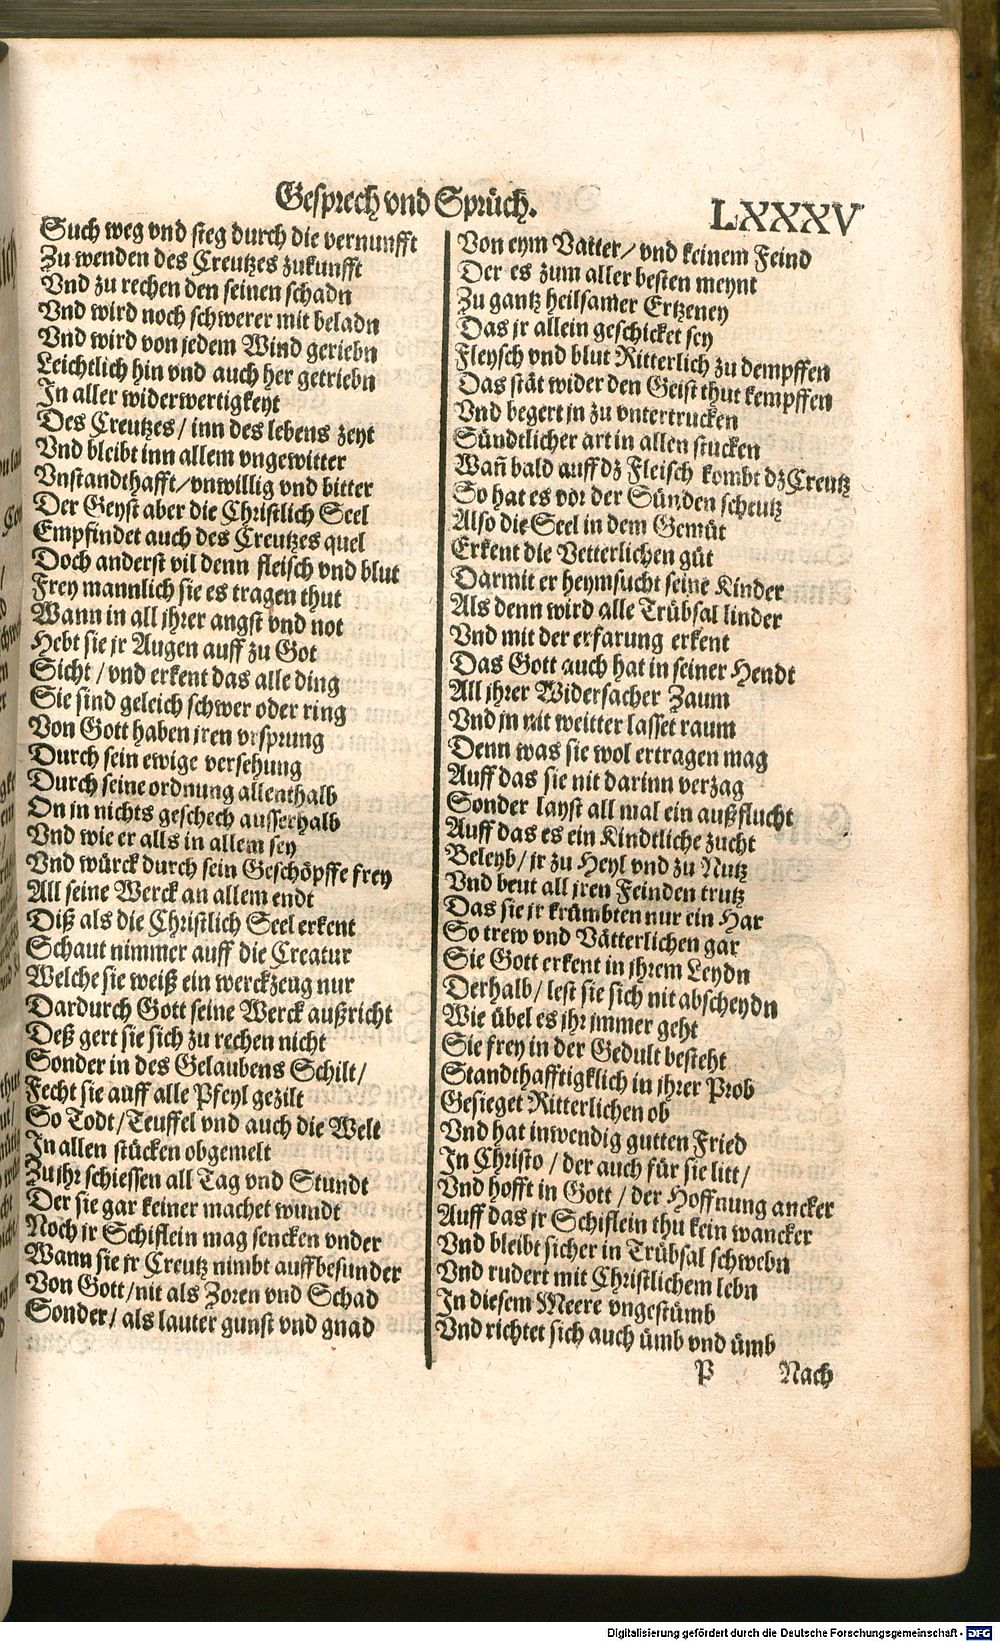 Gesprech vnd Sprüch.
LXXXV
Such weg vnd steg durch die vernunfft
Zu wenden des Creutzes zukunfft
Vnd zu rechen den seinen schadn
Vnd wird noch schwerer mit beladn
Vnd wird von jedem Wind geriebn
Leichtlich hin vnd auch her getriebn
In aller widerwertigkeyt
Des Creutzes / inn des lebens zeyt
Vnd bleibt inn allem vngewitter
Vnstandthafft / vnwillig vnd bitter
Der Geyst aber die Christlich Seel
Empfindet auch des Creutzes quel
Doch anderst vil denn fleisch vnd blut
Frey mannlich sie es tragen thut
Wann in all jhrer angst vnd not
Hebt sie jr Augen auff zu Got
Sicht / vnd erkent das alle ding
Sie sind geleich schwer oder ring
Von Gott haben jren vrsprung
Durch sein ewige versehung
Durch seine ordnung allenthalb
On jn nichts geschech ausserhalb
Vnd wie er alls in allem sey
Vnd würck durch sein Geschöpffe frey
All seine Werck an allem endt
Diß als die Christlich Seel erkent
Schaut nimmer auff die Creatur
Welche sie weiß ein werckzeug nur
Dardurch Gott seine Werck außricht
Deß gert sie sich zu rechen nicht
Sonder in des Gelaubens Schilt /
Fecht sie auff alle Pfeyl gezilt
So Todt / Teuffel vnd auch die Welt
In allen stücken obgemelt
Zu jhr schiessen all Tag vnd Stundt
Der sie gar keiner machet wundt
Noch jr Schiflein mag sencken vnder
Wann sie jr Creutz nimbt auff besunder
Von Gott / nit als Zoren vnd Schad
Sonder / als lauter gunst vnd gnad
Von eym Vatter / vnd keinem Feind
Der es zum aller besten meynt
Zu gantz heilsamer Ertzeney
Das jr allein geschicket sey
Fleysch vnd blut Ritterlich zu dempffen
Das stät wider den Geist thut kempffen
Vnd begert jn zu vntertrucken
Sündtlicher art in allen stucken
Wañ bald auff dz Fleisch kombt dz Creutz
So hat es vor der Sünden scheutz
Also die Seel in dem Gemüt
Erkent die Vetterlichen güt
Darmit er heymsucht seine Kinder
Als denn wird alle Trübsal linder
Vnd mit der erfarung erkent
Das Gott auch hat in seiner Hendt
All jhrer Widersacher Zaum
Vnd jn nit weitter lasset raum
Denn was sie wol ertragen mag
Auff das sie nit darinn verzag
Sonder layst all mal ein außflucht
Auff das es ein Kindtliche zucht
Beleyb / jr zu Heyl vnd zu Nutz
Vnd beut all jren Feinden trutz
Das sie jr krümbten nur ein Har
So trew vnd Vätterlichen gar
Sie Gott erkent in jhrem Leydn
Derhalb / lest sie sich nit abscheydn
Wie übel es jhr jmmer geht
Sie frey in der Gedult besteht
Standthafftigklich in jhrer Prob
Gesieget Ritterlichen ob
Vnd hat inwendig gutten Fried
In Christo / der auch für sie litt /
Vnd hofft in Gott / der Hoffnung ancker
Auff das jr Schiflein thu kein wancker
Vnd bleibt sicher in Trübsal schwebn
Vnd rudert mit Christlichem lebn
In diesem Meere vngestümb
Vnd richtet sich auch ümb vnd ümb
P Nach
Digitalisierung gefördert durch die Deutsche Forschungsgemeinschaft - DFG